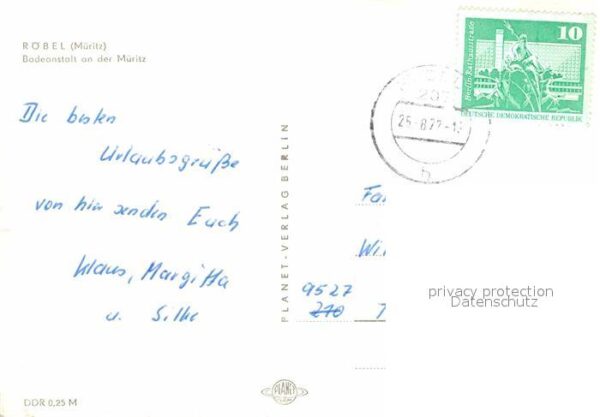 RÖBEL (Müritz)
Badeanstalt an der Müritz
Die besten
Urlaubsgrüße
von hier senden Euch
Klaus, Margitta
u. Silke
DDR 0,25 M
PLANET-VERLAG BERLIN
PLANET
10
Berlin, Rathausstraße
DEUTSCHE DEMOKRATISCHE REPUBLIK
207
25.-8.77-1
b
Fa
Wi
9527
270 T
privacy protection
Datenschutz